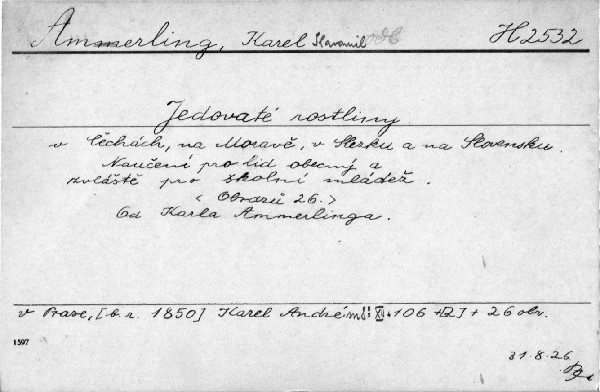 Ammerling, Karel Slavomil H 2532
Jedovaté rostliny
v Čěchách, na Moravě, v Slezku a na Slovensku.
Naučení pro lid obecný a
zvláště pro školní mládež.
< Obrazů 26. >
Od Karla Ammerlinga.
v Praze, [b. r. 1850] Karel André 8° XV. 106 + [2] + 26 obr.
1597
31.8.26.